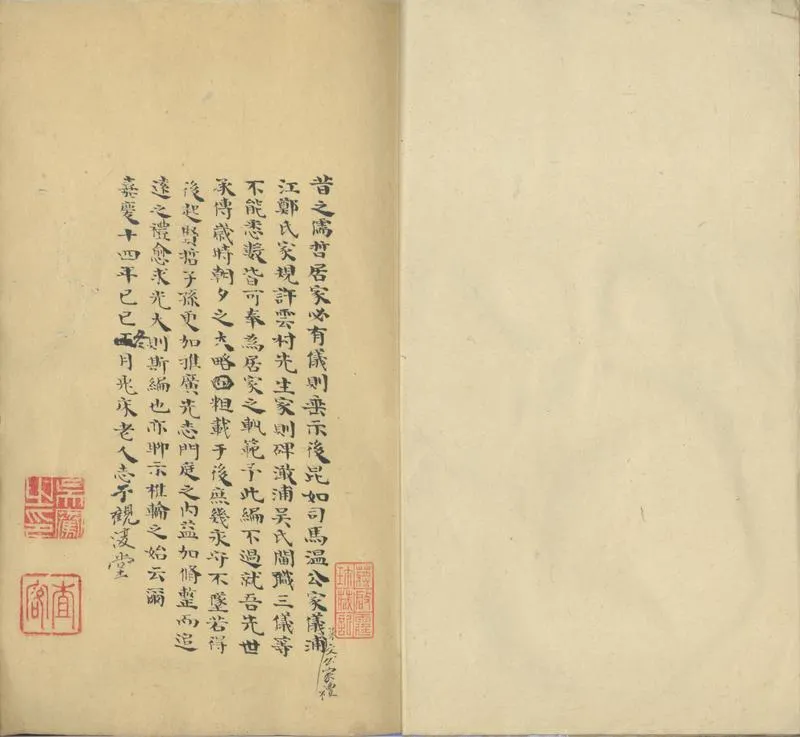 昔之儒哲居家必有儀則垂示後昆如司馬温公家儀浦
朱文公家禮
江鄭氏家規許雲村先生家則碑澉浦吳氏閫職三儀等
不能悉數皆可奉為居家之軌範予此編不過就吾先世
承傳歲時朝夕之大略粗載于後庶幾永守不墜若得
後起賢哲子孫更加推廣先志門庭之内益加脩整而追
遠之禮愈求光大則斯編也亦聊示椎輪之始云爾
嘉慶十四年已巳冬月兎床老人志于觀復堂
吳騫之印